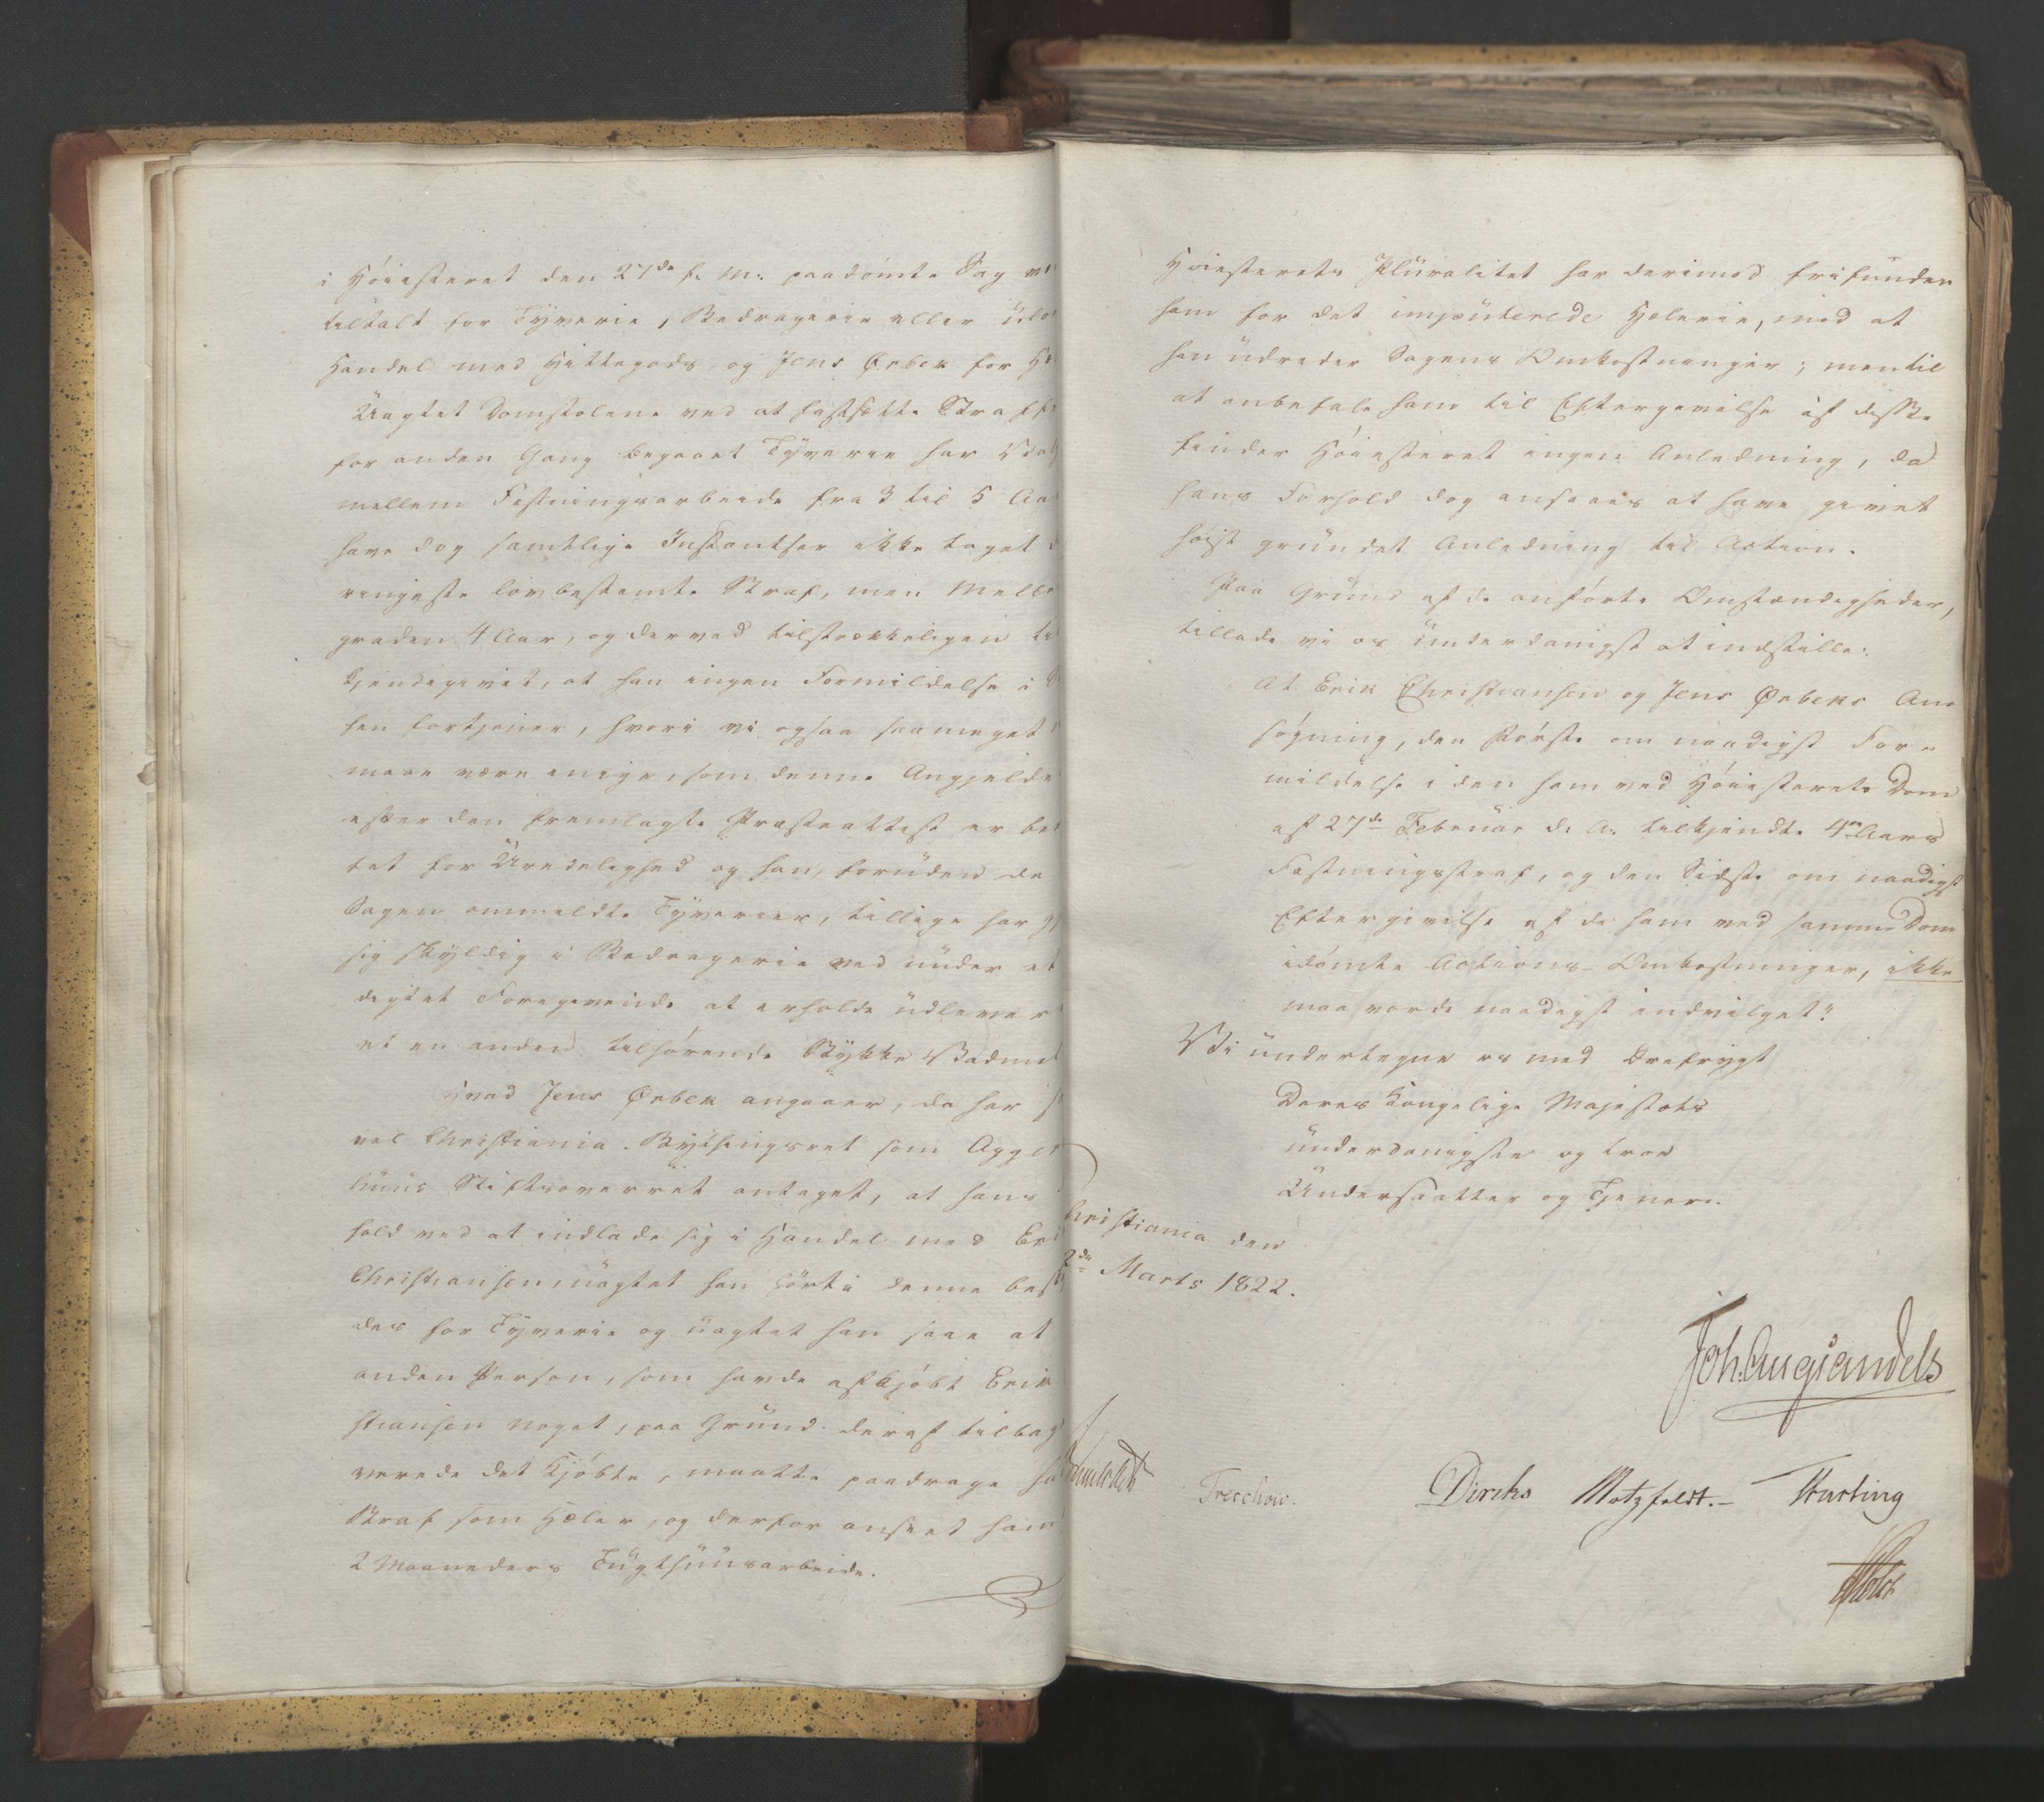 i Höiesteret den 27de f. M. paadömte Sag
tiltalt for Tyverie, Bedragerie eller
Handel med Hittegods, og Jens Ørbek for
Uagtet Domstolene ved at fastsætte Straffe
for anden Gang begaaet Tyverie har
mellem Fæstningsarbeide fra 3 til 5 Aar
have dog samtlige Instantser ikke taget
ringeste lovbestemte Straf, men Melle
graden 4 Aar, og derved tilstrækkeligen
kjendegivet, at han ingen Formildelse i
fen fortjener, hvori vi ogsaa saameget
maae være enige, som denne Angjelde
efter den fremlagte Præsteattest er
tet for Uredelighed og han, foruden de
Sagen ommeldte Tyverier, tillige har
sig skyldig i Bedragerie ved under et
digtet Foregivende at erholde udlever
et en anden tilhörende Stykke Vadmel
Hvad Jens Ørbek angaaer, da har
vel Christiania Bythingsret som Agger
huus Stiftsoverret antaget, at hans
hold ved at indlade sig i Handel med Eri
Christiansen, uagtet han hørte denne
des for Tyverie og uagtet han saae at
anden Person, som havde afkjöbt Erik
stiansen noget, paa Grund deraf tilbag
verede det Kjöbte, maatte paadrage
Straf som Hæler, og derfor anseet ham
2 Maaneders Tugthuusarbeide.
Høiesterets Pluralitet har derimod frifunden
ham for det imputerede Hælerie, mod at
han udreder Sagens Omkostninger; men til
at anbefale ham til Eftergivelse af disse
finder Höiesteret ingen Anledning, da
hans Forhold dog ansees at have givet
höist grundet Anledning til Action.
Paa Grund af de anförte Omstændigheder,
tillade vi os underdanigst at indstille:
At Erik Christiansen og Jens Ørbeks An-
sögning, den Förste om naadigst For-
mildelse i den ham ved Höiesterets Dom
af 27de Februar d. A. tilkjendte 4re Aars
Fæstningsstraf, og den Sidste om naadigst
Eftergivelse af de ham ved samme Dom
idömte Actions-Omkostninger, ikke
maa vorde naadigst indvilget."
Vi undertegne os med Ærefrygt
Deres Kongelige Majestæts
underdanigste og troe
Undersaatter og Tjenere.
Christiania den
Marts 1822.
Joh. Aug Sandels
Treschow.
Diriks Motzfeldt.- Fasting
Holst